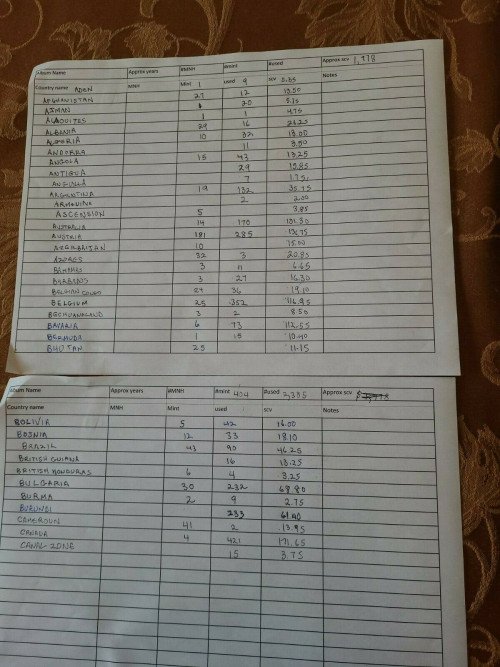 Album Name Approx years #MNH #mint #used Approx scv 1,778
Country name ADEN MNH Mint 1 used 9 scv 5.35 Notes
AFGHANISTAN 27 12 13.50
AJMAN 1 20 5.75
ALAOUITES 1 1 4.75
ALBANIA 29 16 21.25
ALGERIA 10 321 13.00
ANDORRA 11 3.50
ANGOLA 15 43 13.25
ANTIGUA 29
ANGUILLA 7 1.75
ARGENTINA 19 132 35.75
2 2.00
ASCENSION 5 3.85
AUSTRALIA 14 170 131.30
AUSTRIA 181 285
AZERBAIJAN 10 15.00
AZORES 32 3 20.85
BAHAMAS 3 11 6.65
BARBADOS 3 27 16.30
BELGIAN CONGO 24 36 19.10
BELGIUM 25 352 116.95
BECHUANALAND 3 2 8.50
BAVARIA 6 73 112.55
BERMUDA 1 15 10.40
BHUTAN 25 11.15
Album Name Approx years #MNH #mint 404 #used 2,335 Approx scv
Country name MNH Mint used scv Notes
BOLIVIA 5 42 16.00
BOSNIA 12 33 18.10
BRAZIL 43 90 46.25
BRITISH GUIANA 16 13.25
BRITISH HONDURAS 6 4 3.25
BULGARIA 30 232 69.80
BURMA 2 9 2.75
BURUNDI 233 61.40
CAMEROUN 41 2 13.95
CANADA 4 421 171.65
CANAL ZONE 15 3.75